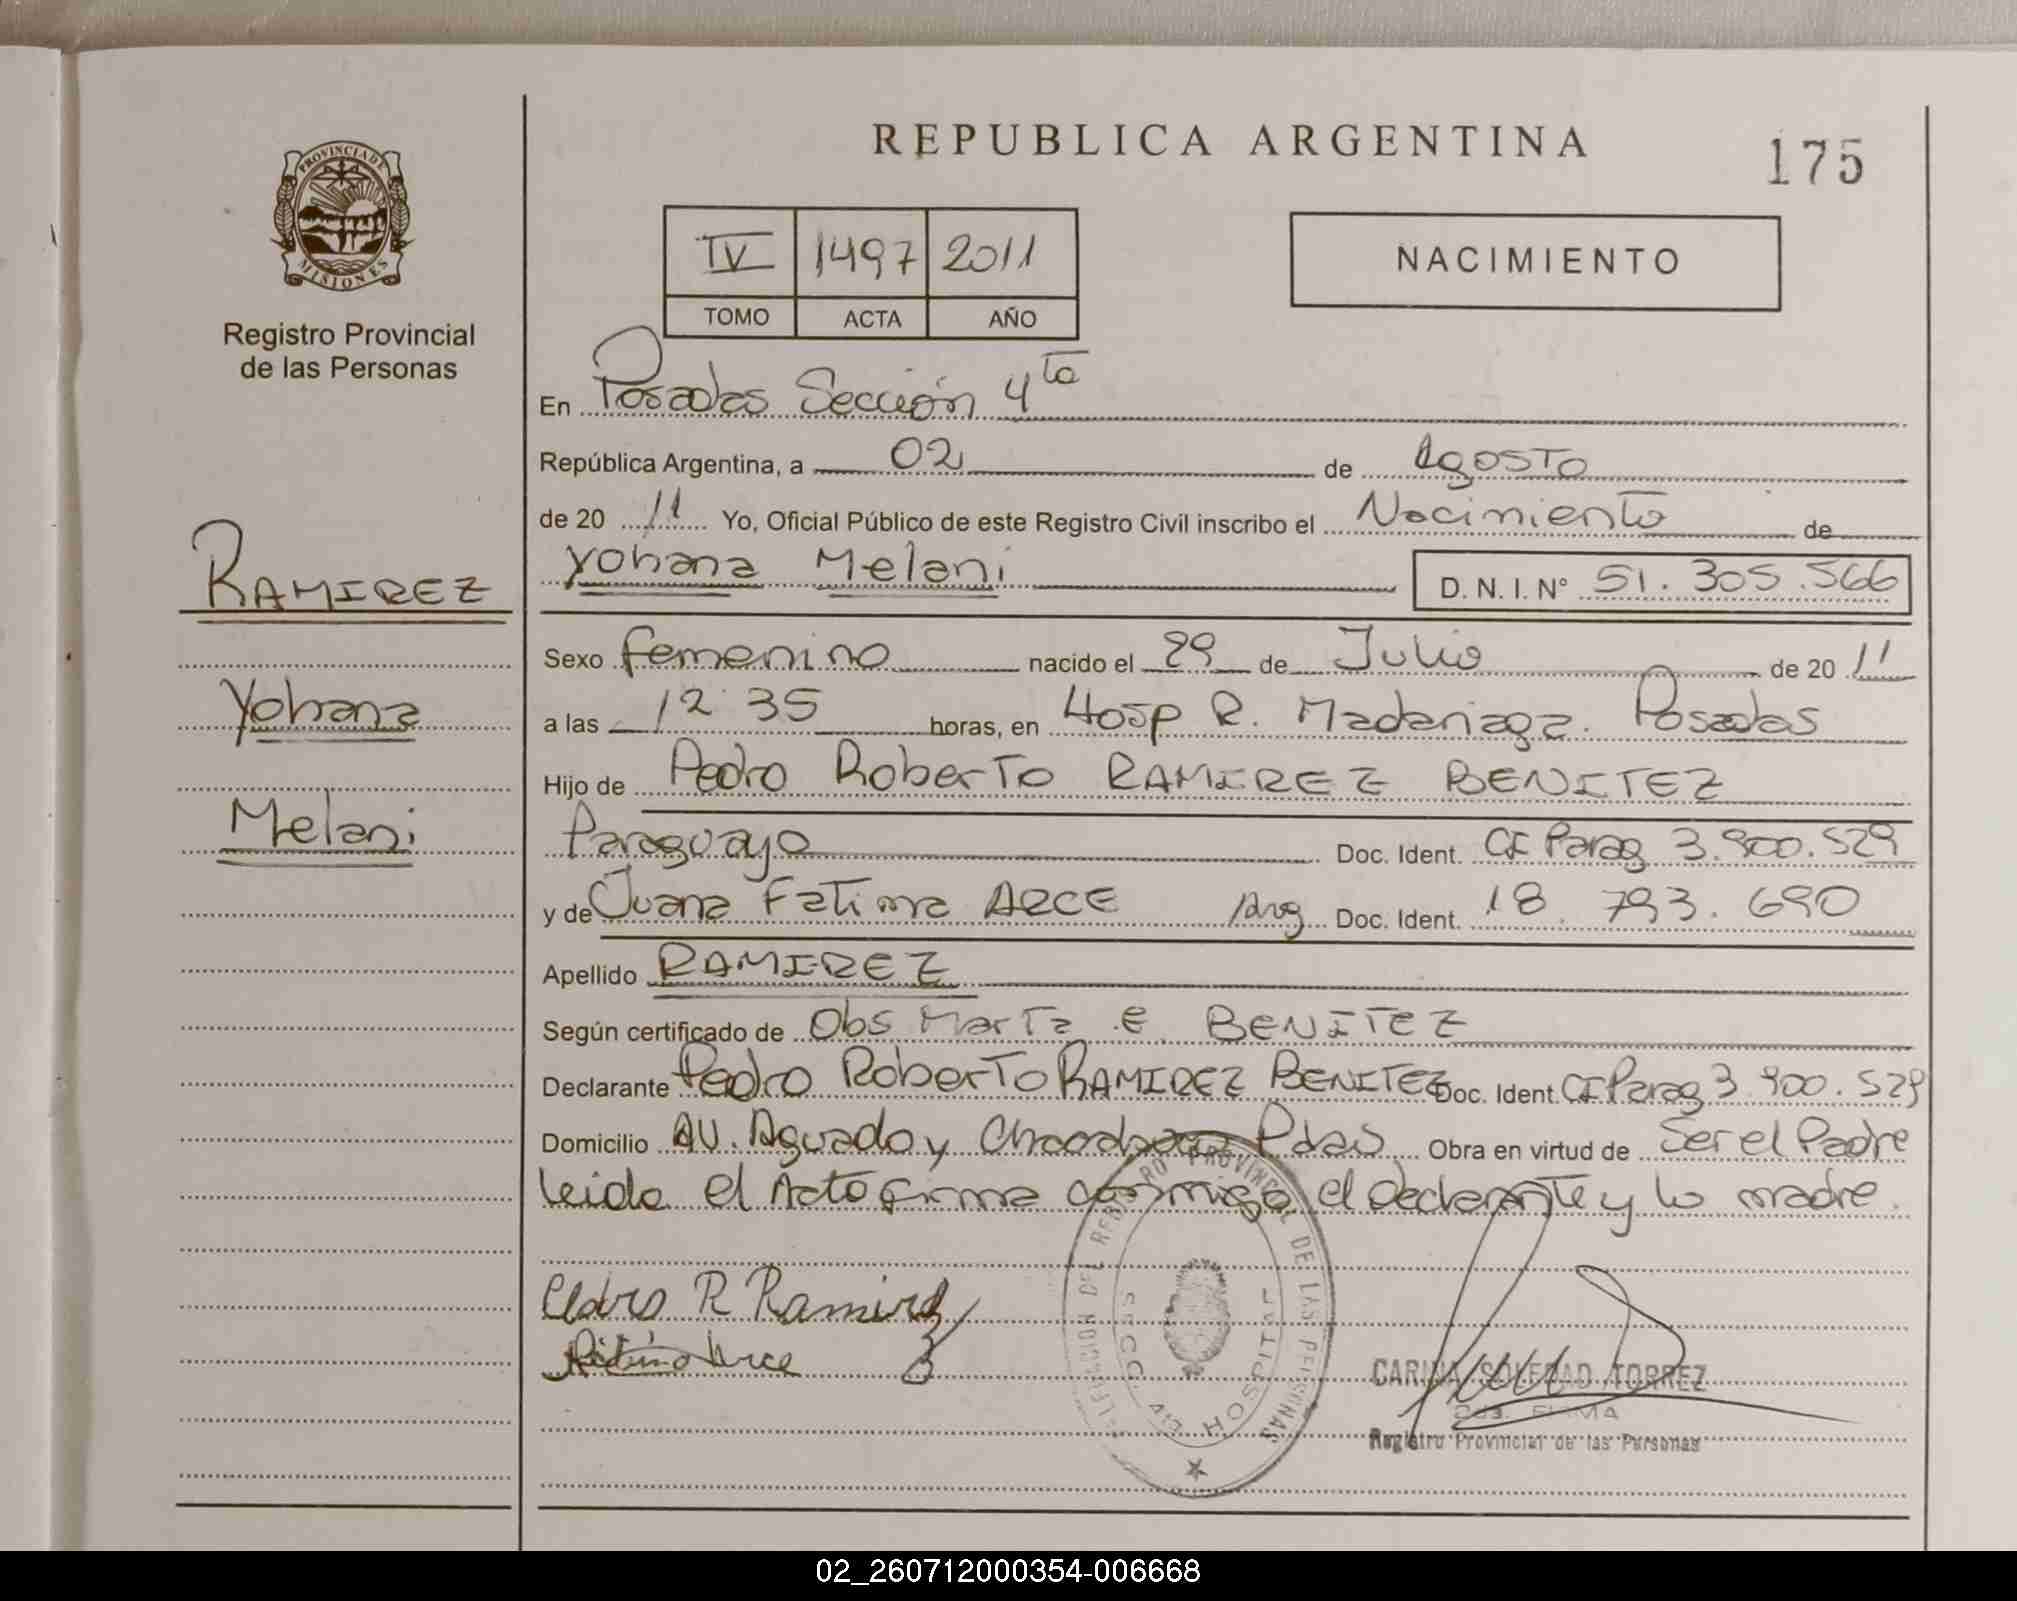 REPUBLICA ARGENTINA
175
PROVINCIA DE MISIONES
Registro Provincial
de las Personas
IV 1497 2011
TOMO ACTA AÑO
NACIMIENTO
En Posadas Sección 4ta
República Argentina, a 02 de Agosto
de 20 11 Yo, Oficial Público de este Registro Civil inscribo el Nacimiento de
Yohana Melani D. N. I. Nº 51.305.566
RAMIREZ
Yohana
Melani
Sexo femenino nacido el 29 de Julio de 20 11
a las 12 35 horas, en Hosp R. Madariaga. Posadas
Hijo de Pedro Roberto RAMIREZ BENITEZ
Paraguayo Doc. Ident. CI Parag 3.900.529
y de Juana Fatima ARCE Arg Doc. Ident. 18.793.690
Apellido RAMIREZ
Según certificado de Obs Marta E BENITEZ
Declarante Pedro Roberto RAMIREZ BENITEZ Doc. Ident. CI Parag 3.900.529
Domicilio AV. Aguado y Pdas Obra en virtud de Ser el Padre
leida el Acta firma conmigo el declarante y la madre.
Pedro R Ramirez
Arce
REGISTRO PROVINCIAL DE LAS PERSONAS
SECC. 4ta HOSPITAL
CARINA SOLEDAD TORREZ
FIRMA
Registro Provincial de las Personas
02_260712000354-006668